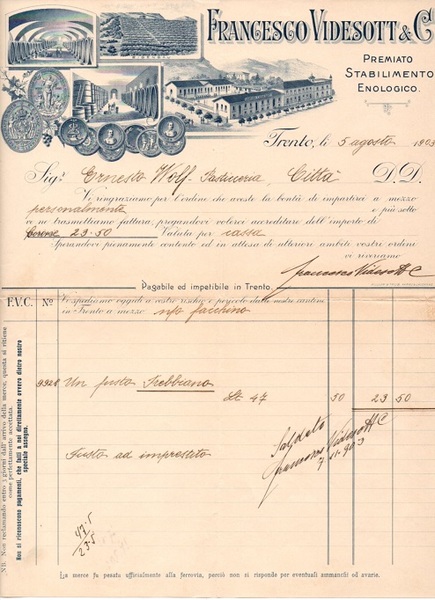 FRANCESCO VIDESOTT & C
PREMIATO
STABILIMENTO
ENOLOGICO.
Trento, li 5 agosto 1903
Sigr. Ernesto Wolf. Pasticceria, Città D.D.
Vi ringraziamo per l'ordine che aveste la bontà di impartirci a mezzo
personalmente e più sotto
ve ne trasmettiamo fattura, pregandovi volerci accreditare dell'importo di
Corone 23.50 Valuta per cassa
Sperandovi pienamente contento ed in attesa di ulteriori ambiti vostri ordini
vi riveriamo
Francesco Videsott & C
Pagabile ed impetibile in Trento.
F.V.C. No Vi spediamo oggidì a vostro rischio e pericolo dalle nostre cantine
in Trento a mezzo n/o facchino
9328 Un fusto Trebbiano
Lt 47 50 23 50
Fusto ad imprestito
Saldato
Francesco Videsott & C
7.11.903
47.5
23.5
La merce fu pesata ufficialmente alla ferrovia, perciò non si risponde per eventuali ammanchi od avarie.
NB. Non reclamando entro 3 giorni dall'arrivo della merce, questa si ritiene
come perfettamente accettata.
Non si riconoscono pagamenti, che fatti a noi direttamente ovvero dietro nostro
speciale assegno.